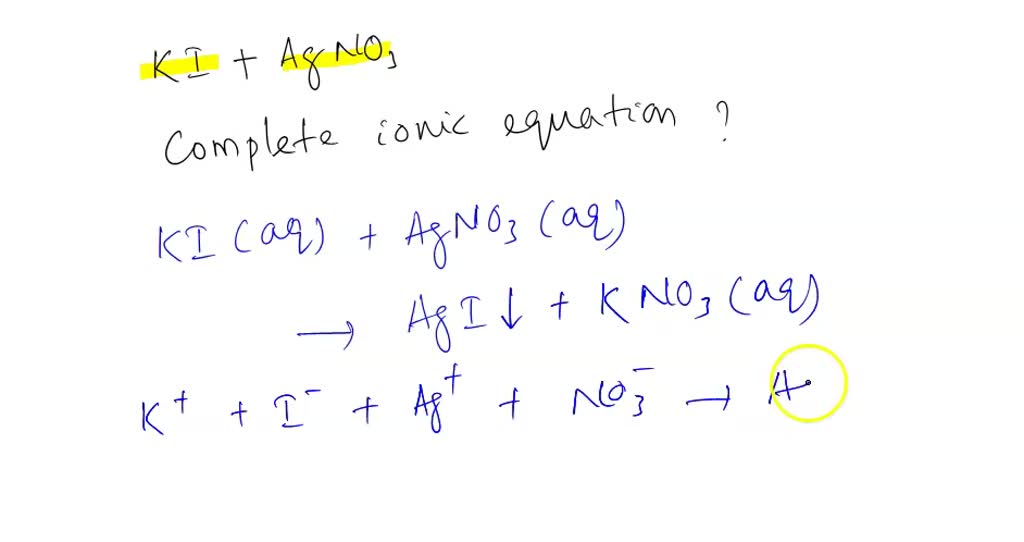 KI + AgNO₃
Complete ionic equation ?
KI (aq) + AgNO₃ (aq)
→ AgI↓ + KNO₃ (aq)
K⁺ + I⁻ + Ag⁺ + NO₃⁻ → A